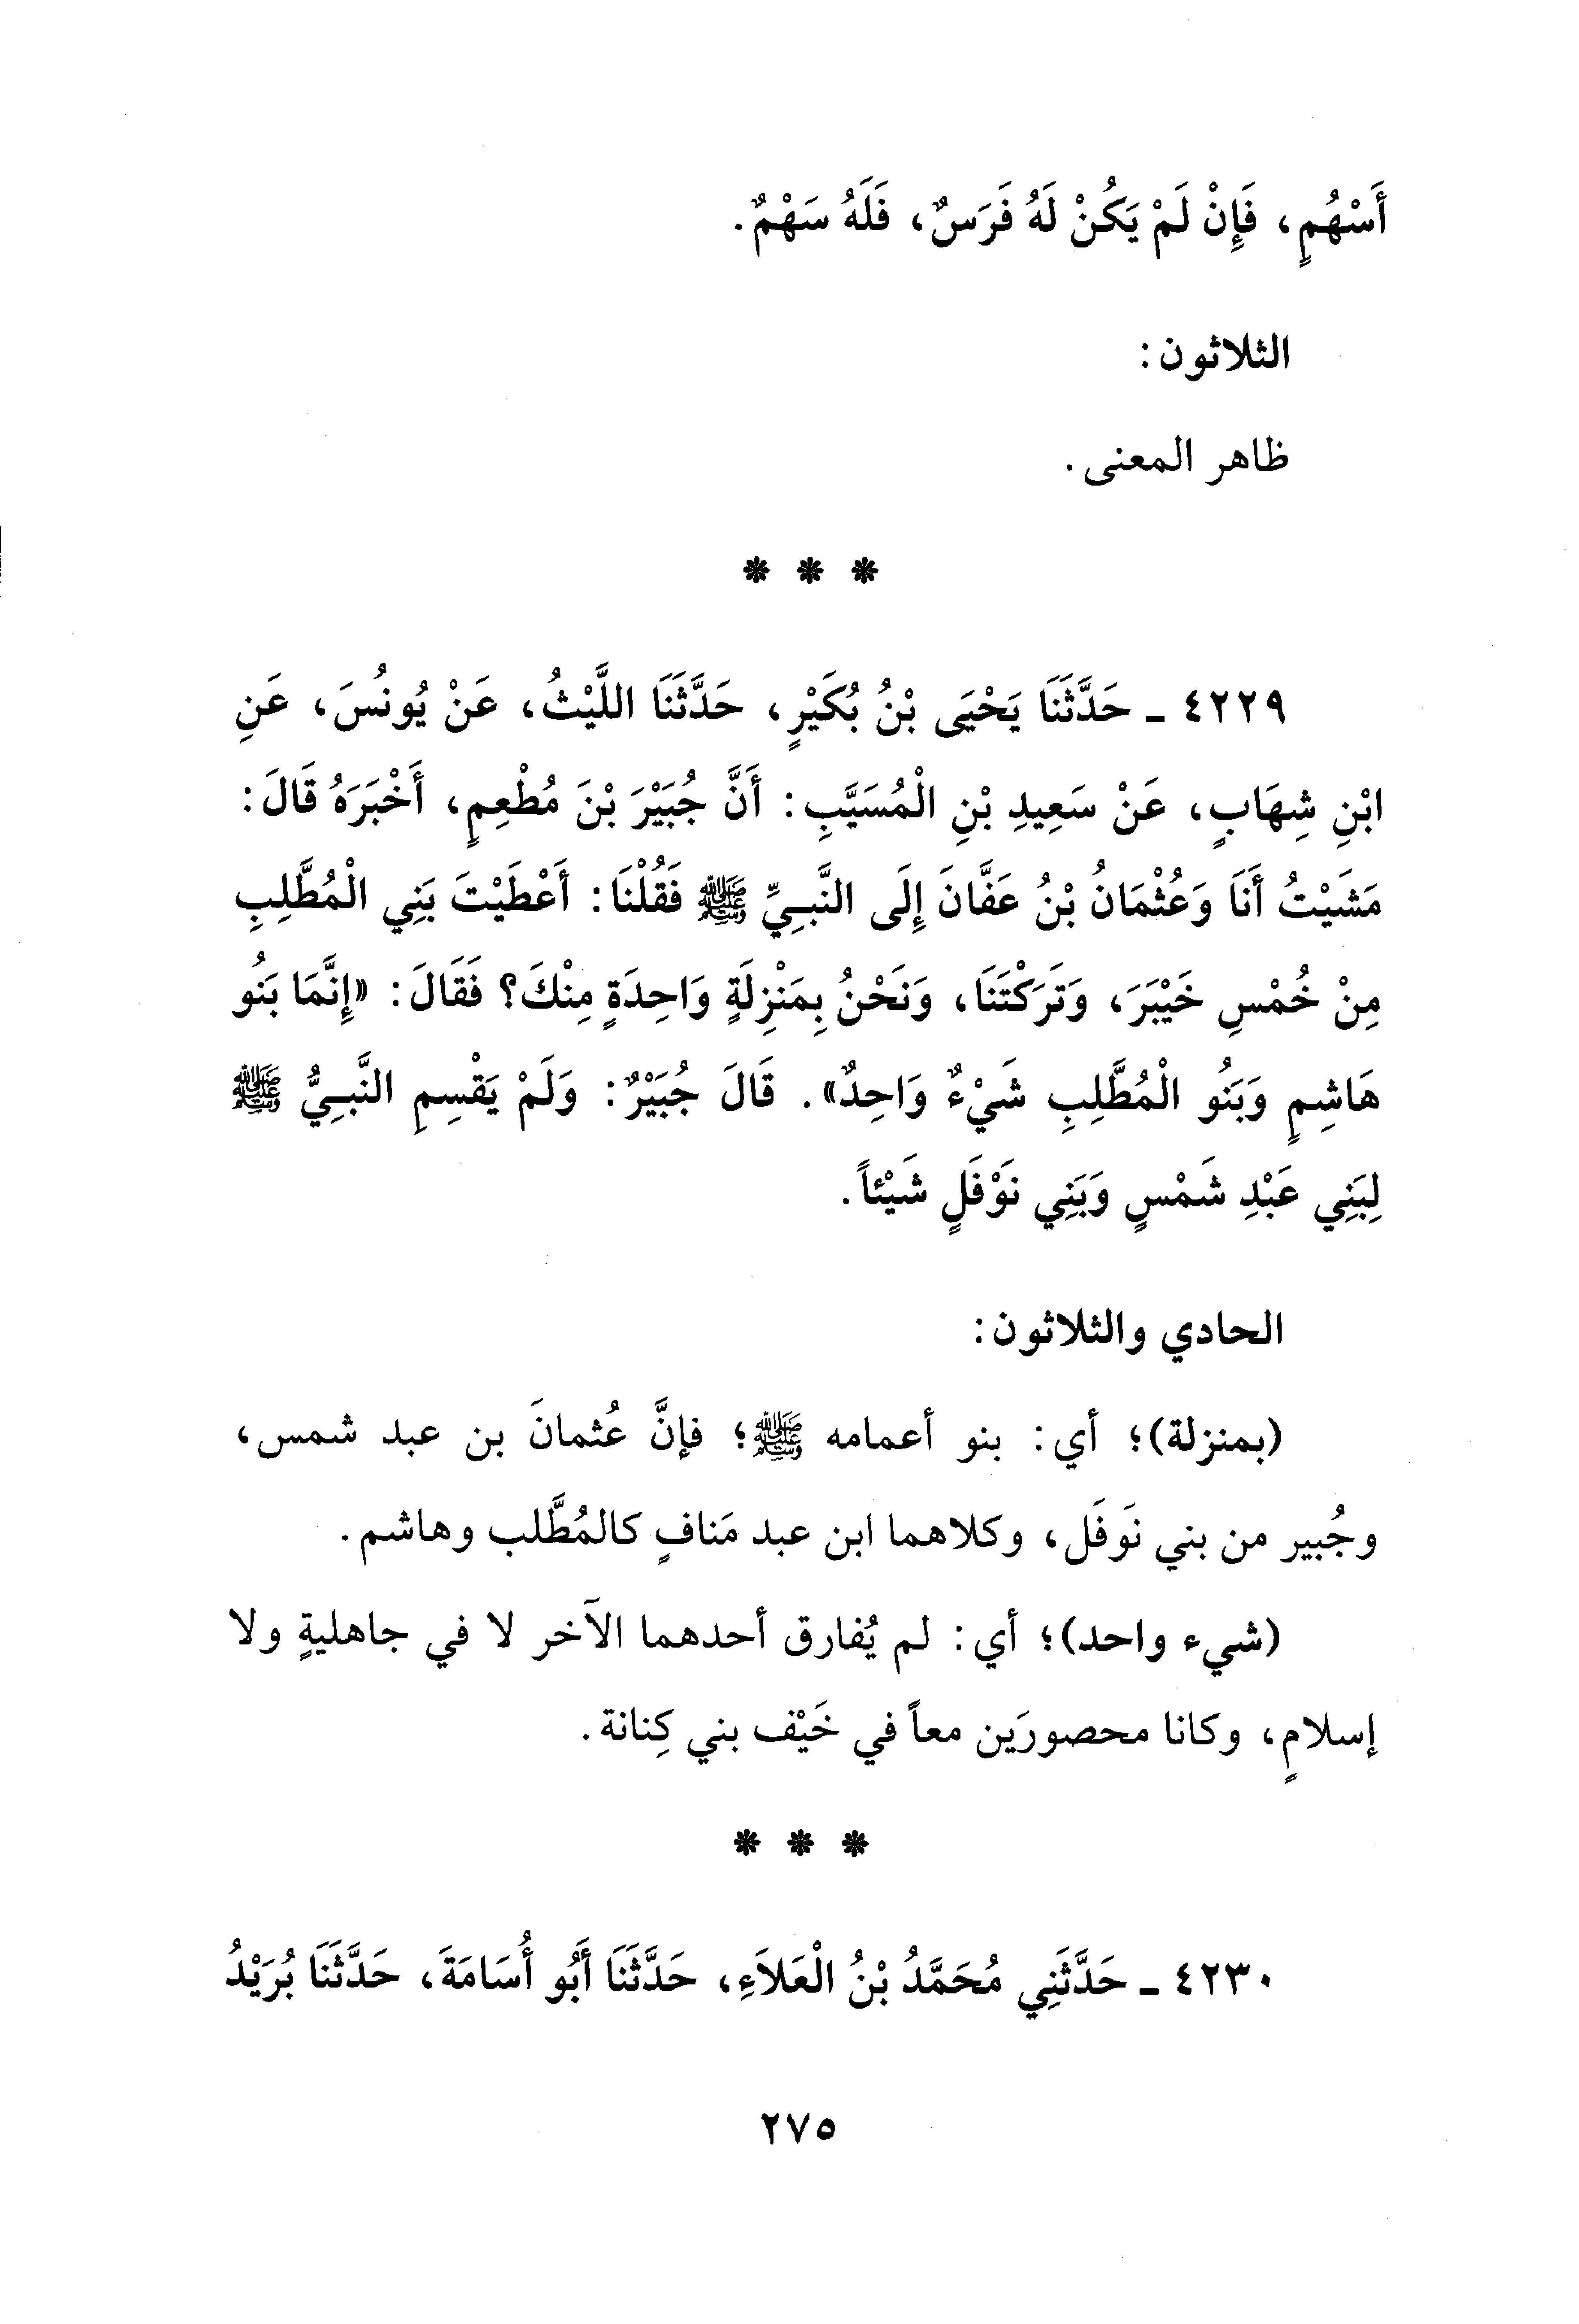 أَسْهُمٍ، فَإِنْ لَمْ يَكُنْ لَهُ فَرَسٌ، فَلَهُ سَهْمٌ.
الثلاثون:
ظاهر المعنى.
* * *
٤٢٢٩ - حَدَّثَنَا يَحْيَى بْنُ بُكَيْرٍ، حَدَّثَنَا اللَّيْثُ، عَنْ يُونُسَ، عَنِ
ابْنِ شِهَابٍ، عَنْ سَعِيدِ بْنِ الْمُسَيَّبِ: أَنَّ جُبَيْرَ بْنَ مُطْعِمٍ، أَخْبَرَهُ قَالَ:
مَشَيْتُ أَنَا وَعُثْمَانُ بْنُ عَفَّانَ إِلَى النَّبِيِّ ﷺ فَقُلْنَا: أَعْطَيْتَ بَنِي الْمُطَّلِبِ
مِنْ خُمْسِ خَيْبَرَ، وَتَرَكْتَنَا، وَنَحْنُ بِمَنْزِلَةٍ وَاحِدَةٍ مِنْكَ؟ فَقَالَ: «إِنَّمَا بَنُو
هَاشِمٍ وَبَنُو الْمُطَّلِبِ شَيْءٌ وَاحِدٌ». قَالَ جُبَيْرٌ: وَلَمْ يَقْسِمِ النَّبِيُّ ﷺ
لِبَنِي عَبْدِ شَمْسٍ وَبَنِي نَوْفَلٍ شَيْئاً.
الحادي والثلاثون:
(بمنزلة)؛ أي: بنو أعمامه ﷺ؛ فإنَّ عُثمانَ بن عبد شمس،
وجُبير من بني نَوفَل، وكلاهما ابن عبد مَنافٍ كالمُطَّلب وهاشم.
(شيء واحد)؛ أي: لم يُفارق أحدهما الآخر لا في جاهليةٍ ولا
إسلامٍ، وكانا محصورَين معاً في خَيْف بني كِنانة.
* * *
٤٢٣٠ - حَدَّثَنِي مُحَمَّدُ بْنُ الْعَلاَءِ، حَدَّثَنَا أَبُو أُسَامَةَ، حَدَّثَنَا بُرَيْدُ
٢٧٥